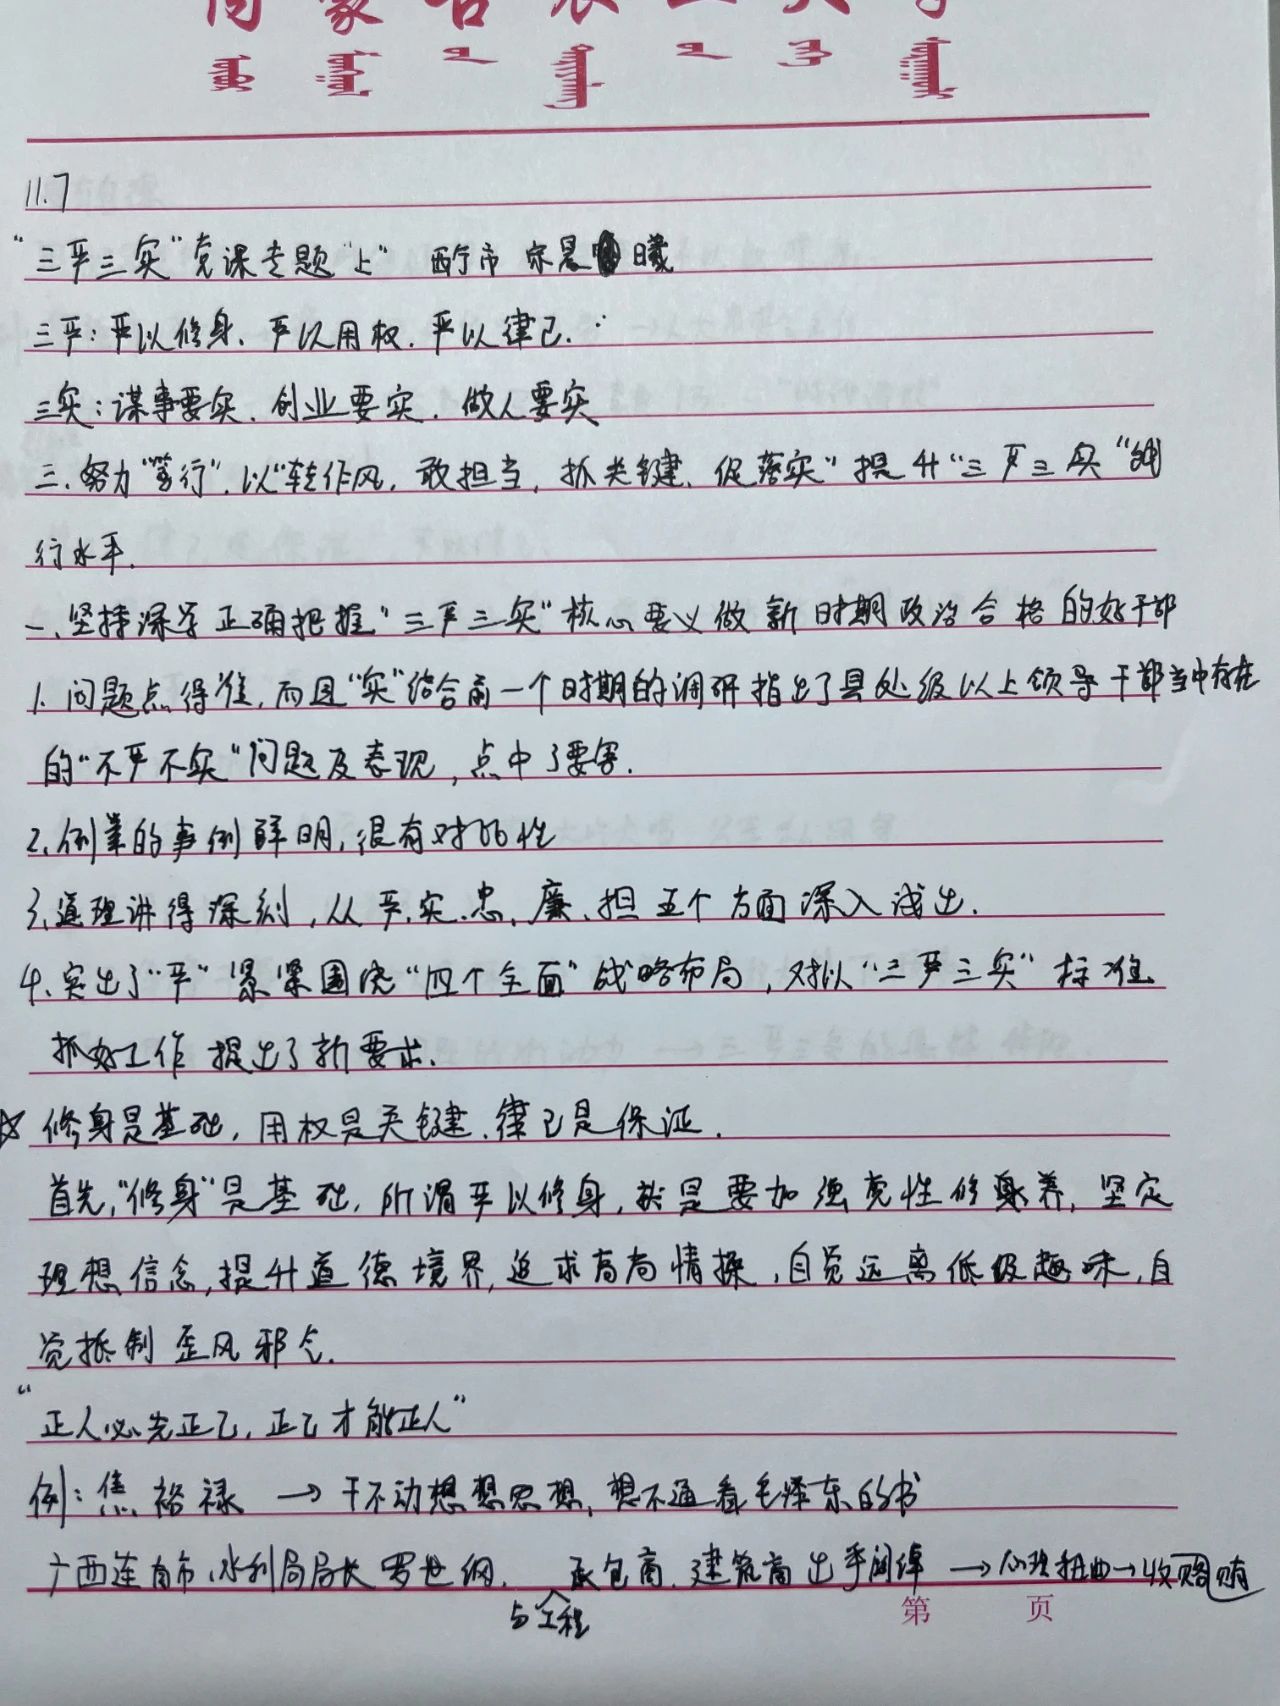 11.7
"三严三实"党课专题"上" 西宁市 宗晨曦
三严：严以修身、严以用权、严以律己.
三实：谋事要实、创业要实、做人要实
三、努力"笃行"，以"转作风，敢担当，抓关键，促落实"提升"三严三实"践
行水平.
一、坚持深学 正确把握"三严三实"核心要义做新时期政治合格的好干部
1. 问题点得准，而且"实"结合前一个时期的调研指出了县处级以上领导干部当中存在
的"不严不实"问题及表现，点中了要害.
2. 例举的事例鲜明，很有对的性
3. 道理讲得深刻，从严、实、忠、廉、担五个方面深入浅出.
4. 突出了"严"紧紧围绕"四个全面"战略布局，对拟"三严三实"标准
抓好工作提出了新要求.
☆ 修身是基础，用权是关键、律己是保证.
首先，"修身"是基础，所谓严以修身，就是要加强党性修养，坚定
理想信念，提升道德境界，追求高尚情操，自觉远离低级趣味，自
觉抵制歪风邪气.
"正人必先正己，正己才能正人"
例：焦裕禄 → 干不动想想思想，想不通看毛泽东的书
广西连 市水利局局长 罗世纲. 与工程承包商、建筑商出手阔绰 → 心理扭曲 → 收贿赂
第 页